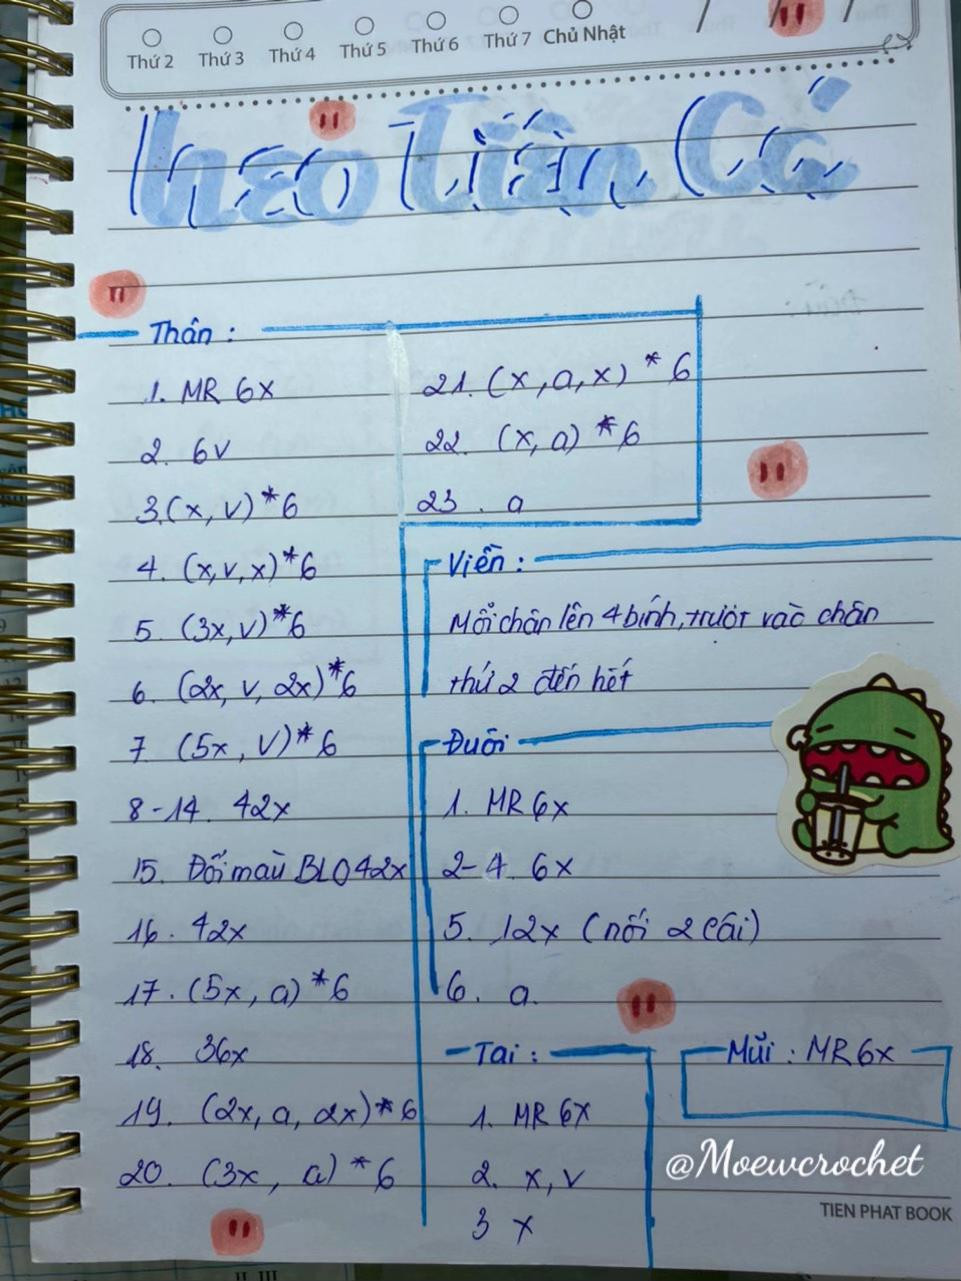 Thứ 2 Thứ 3 Thứ 4 Thứ 5 Thứ 6 Thứ 7 Chủ Nhật
Heo Tiên Cá
Thân :
1. MR 6x
2. 6v
3.(x, v) * 6
4. (x, v, x) * 6
5. (3x, v) * 6
6. (2x, v, 2x) * 6
7 (5x, v) * 6
8 - 14. 42x
15. Đổi màu BLO 42x
16. 42x
17. (5x, a) * 6
18. 36x
19. (2x, a, 2x) * 6
20. (3x, a) * 6
21. (x, a, x) * 6
22. (x, a) * 6
23. a
Viền :
Mỗi chân lên 4 bính, trượt vào chân
thứ 2 đến hết
Đuôi
1. MR 6x
2-4. 6x
5. 12x (nối 2 cái)
6. a.
Tai :
1. MR 6x
2. x, v
3 x
Mũi : MR 6x
@Moewcrochet
TIEN PHAT BOOK